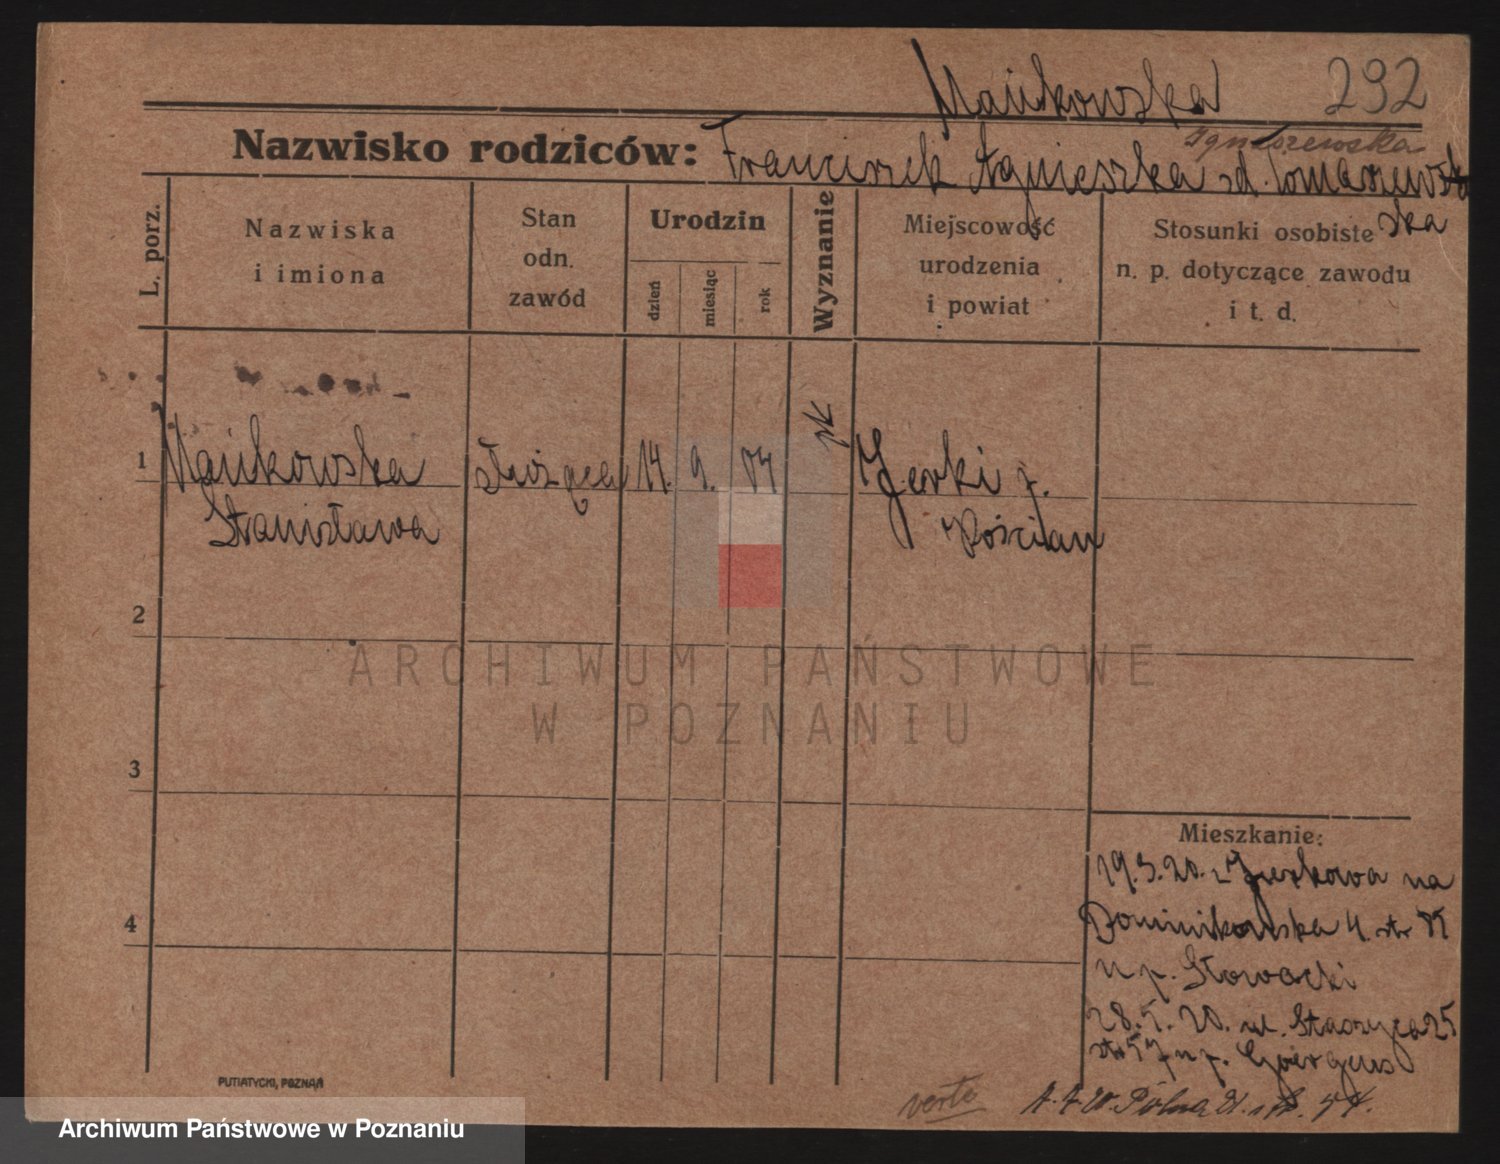 Mańkowska 292
Ignaszewska
Nazwisko rodziców: Franciszek Agnieszka zd. Tomaszewska
ska
L. porz.
Nazwiska
i imiona
Stan
odn.
zawód
Urodzin
dzień
miesiąc
rok
Wyznanie
Miejscowość
urodzenia
i powiat
Stosunki osobiste
n. p. dotyczące zawodu
i t. d.
1 Mańkowska służąca 14. 9. 04 rk Jerki p.
Stanisława Kościan
2
ARCHIWUM PAŃSTWOWE
W POZNANIU
3
Mieszkanie:
19.3.20. z Jerkowa na
4
Dominikańska 4. str 85
u p. Słowacki
28.5.20. ul. Staszyca 25
str 57 u p. Goergens
verte
Polna 21. str. 44.
PUTIATYCKI, POZNAŃ
Archiwum Państwowe w Poznaniu